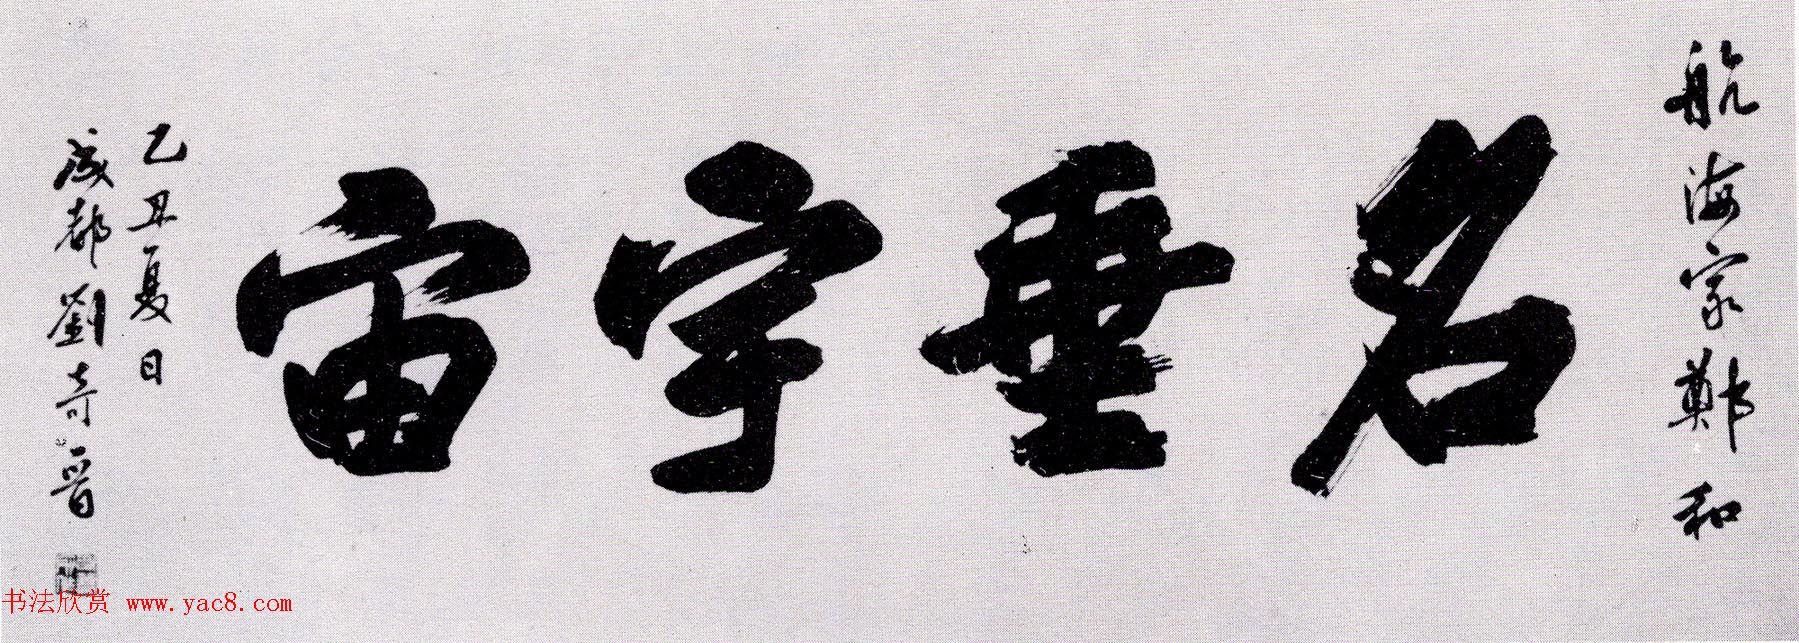 航海家鄭和
名垂宇宙
乙丑夏日
成都劉奇晉
书法欣赏 www.yac8.com